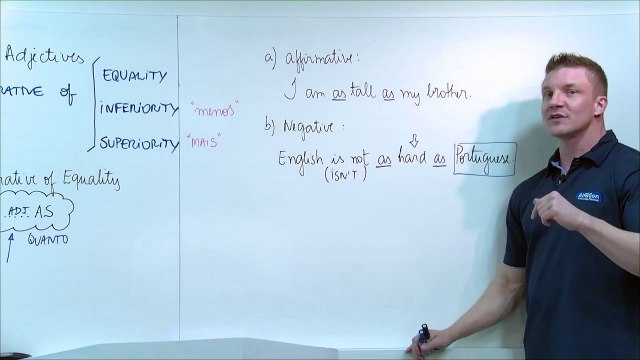 Adjectives
RATIVE OF
EQUALITY
INFERIORITY "menos"
SUPERIORITY "MAIS"
native of Equality
ADJ. AS
QUANTO
a) affirmative:
I am as tall as my brother.
b) Negative:
English is not as hard as Portuguese
(ISN'T)